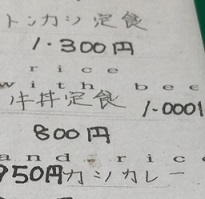 トンカツ定食
1.300円
rice
with bee
牛丼定食
1.000
800円
and rice
950円カツカレー